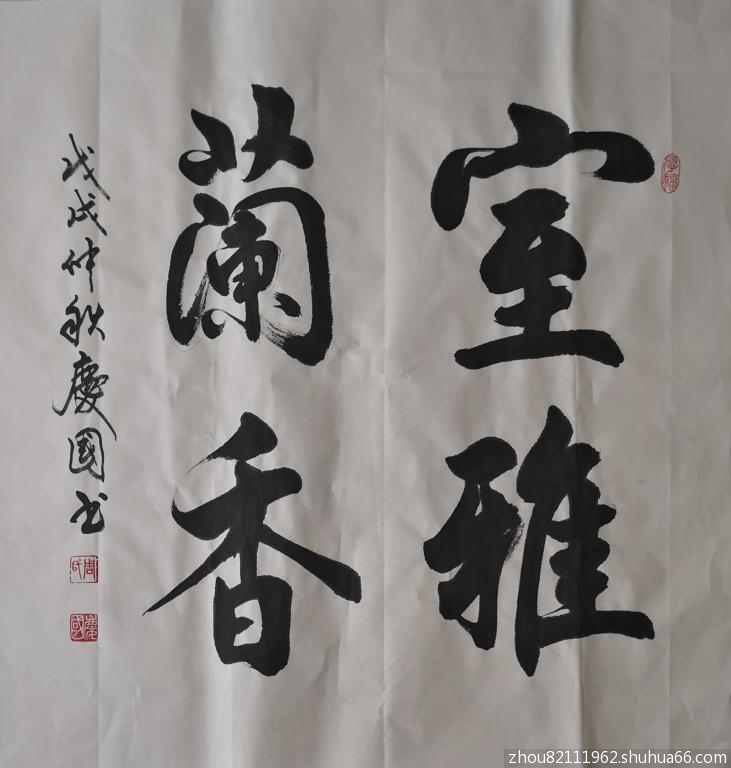 室雅
蘭香
戊戌仲秋慶國书
周氏
慶國
zhou82111962.shuhua66.com